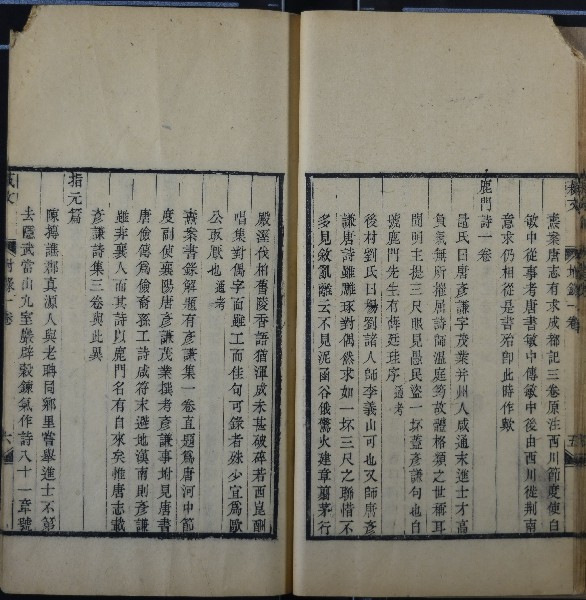 燾案唐志有求成都記三卷原注西川節度使白
敏中從事考唐書敏中傳敏中後由西川徙荆南
意求仍相從是書殆卽此時作歟
鹿門詩一卷
晁氏曰唐彥謙字茂業并州人咸通末進士才高
負氣無所推屈詩師溫庭筠故體格類之世稱耳
聞明主提三尺眼見愚民盜一坏蓋彥謙句也自
號鹿門先生有薛廷珪序 通考
後村劉氏曰楊劉諸人師李義山可也又師唐彥
謙唐詩雖雕琢對偶然求如一坏三尺之聯惜不
多見敘亂離云不見泥函谷俄驚火建章翦茅行
殿溼伐柏舊陵香語猶渾成未甚破碎若西崑酬
唱集對偶字面雖工而佳句可錄者殊少宜爲歐
公取厭也 通考
燾案書錄解題有彥謙集一卷直題爲唐河中節
度副使襄陽唐彥謙茂業撰考彥謙事坿見唐書
唐儉傳爲儉裔孫工詩咸符末避地漢南則彥謙
雖非襄人而其詩以鹿門名有自來矣惟唐志載
彥謙詩集三卷與此異
指元篇
陳摶譙郡真源人與老聃同鄉里嘗舉進士不第
去隱武當山九室巖辟穀鍊氣作詩八十一章號